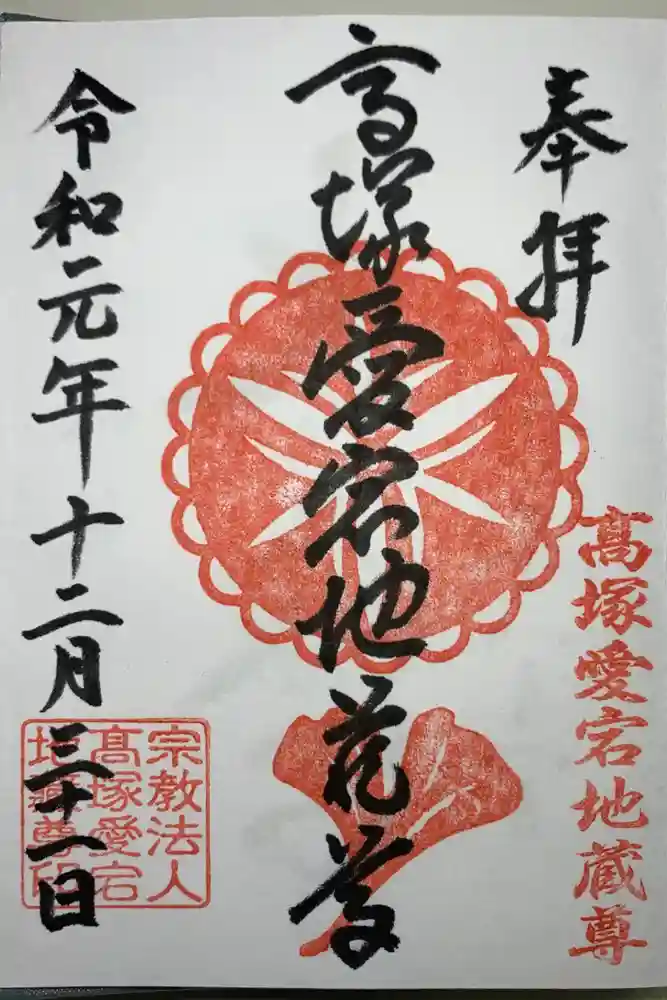 奉拝
髙塚愛宕地蔵尊
高塚愛宕地蔵尊
宗教法人
髙塚愛宕
地蔵尊印
令和元年十二月三十一日